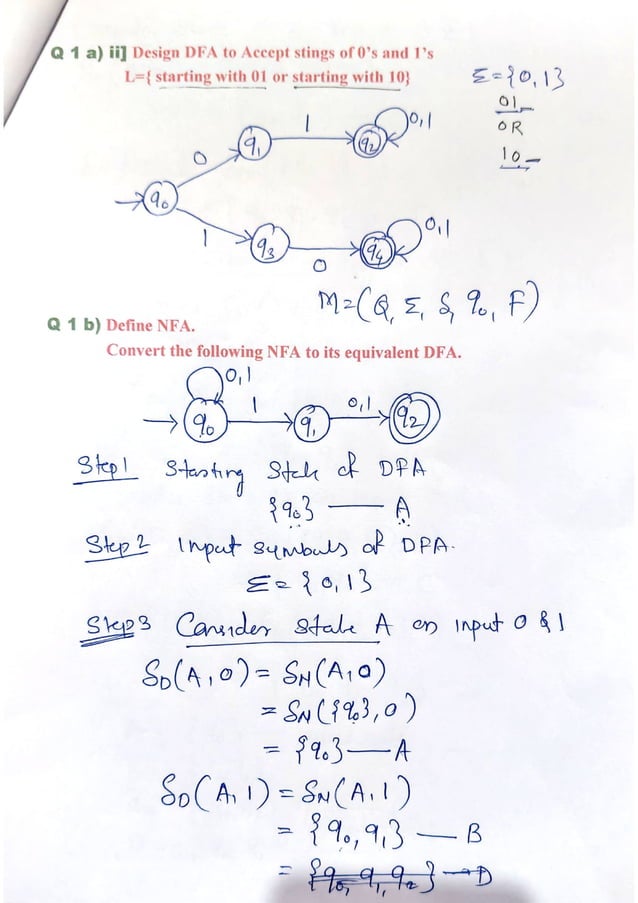 Q 1 a) ii] Design DFA to Accept stings of 0's and 1's
L={ starting with 01 or starting with 10}
Σ={0,1}
01
OR
10
0
q1
1
q2
0,1
q0
1
q3
0
q4
0,1
M=(Q, Σ, δ, q0, F)
Q 1 b) Define NFA.
Convert the following NFA to its equivalent DFA.
0,1
q0
1
q1
0,1
q2
Step1 Starting State of DFA
{q0} — A
Step2 Input symbols of DFA.
Σ = {0,1}
Step3 Consider state A on input 0 & 1
δD(A,0) = δN(A,0)
= δN({q0},0)
= {q0} — A
δD(A,1) = δN(A,1)
= {q0,q1} — B
= {q0, q1, q2} → D